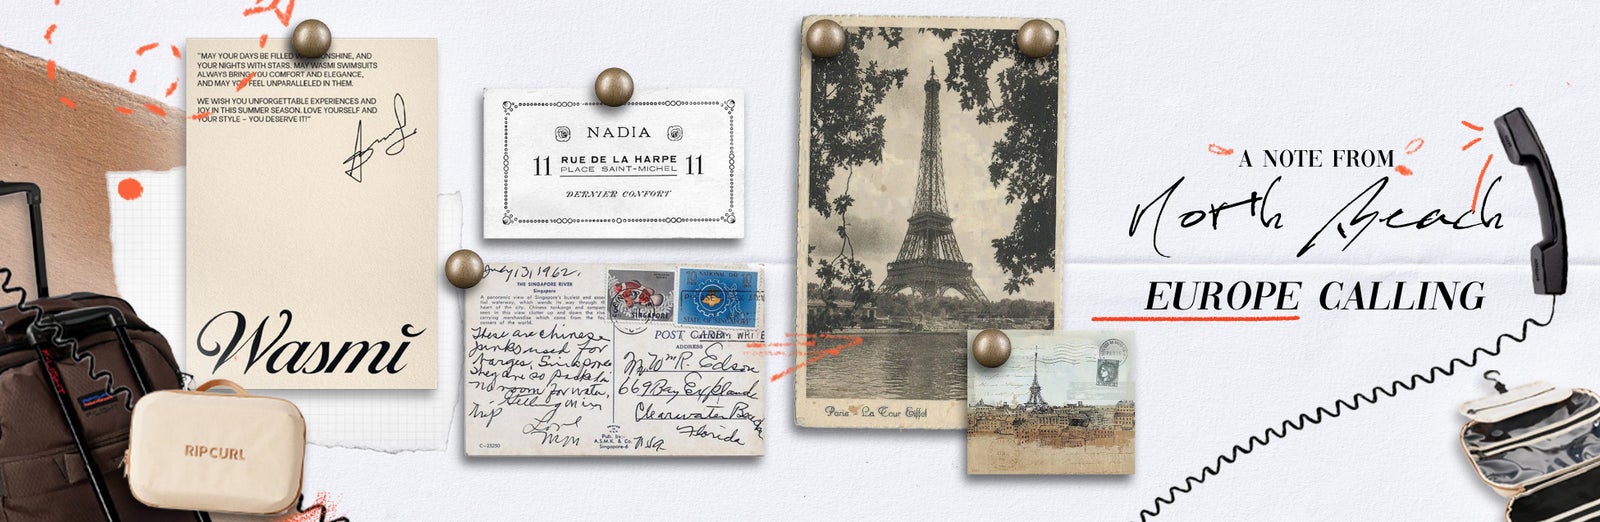 "MAY YOUR DAYS BE FILLED SUNSHINE, AND
YOUR NIGHTS WITH STARS. MAY WASMI SWIMSUITS
ALWAYS BRING YOU COMFORT AND ELEGANCE,
AND MAY YOU FEEL UNPARALLELED IN THEM.
WE WISH YOU UNFORGETTABLE EXPERIENCES AND
JOY IN THIS SUMMER SEASON. LOVE YOURSELF AND
YOUR STYLE - YOU DESERVE IT!"
Wasmi
RIP CURL
NADIA
11 RUE DE LA HARPE 11
PLACE SAINT-MICHEL
DERNIER CONFORT
13, 1962.
THE SINGAPORE RIVER
Singapore
A panoramic view of Singapore's busiest and
tial waterway, which winds its way through
heart of the city. Chinese tongkangs and
seen in this view clutter up and down the
carrying merchandise which come from the
corners of the world.
There are Chinese
junks used for
barges, Singapore
They are so packed
no room for water,
Tell you in
trip
Love
Mym
SINGAPORE
NATIONAL DAY
POST CARD
ADDRESS
Mr. Wm R. Edson
669 Bay Esplanade
Clearwater Beach
Florida
USA
C-23250
Pub. by:-
A.S.M.K. & Co.
Singapore-6
Paris - La Tour Eiffel
A NOTE FROM
North Beach
EUROPE CALLING